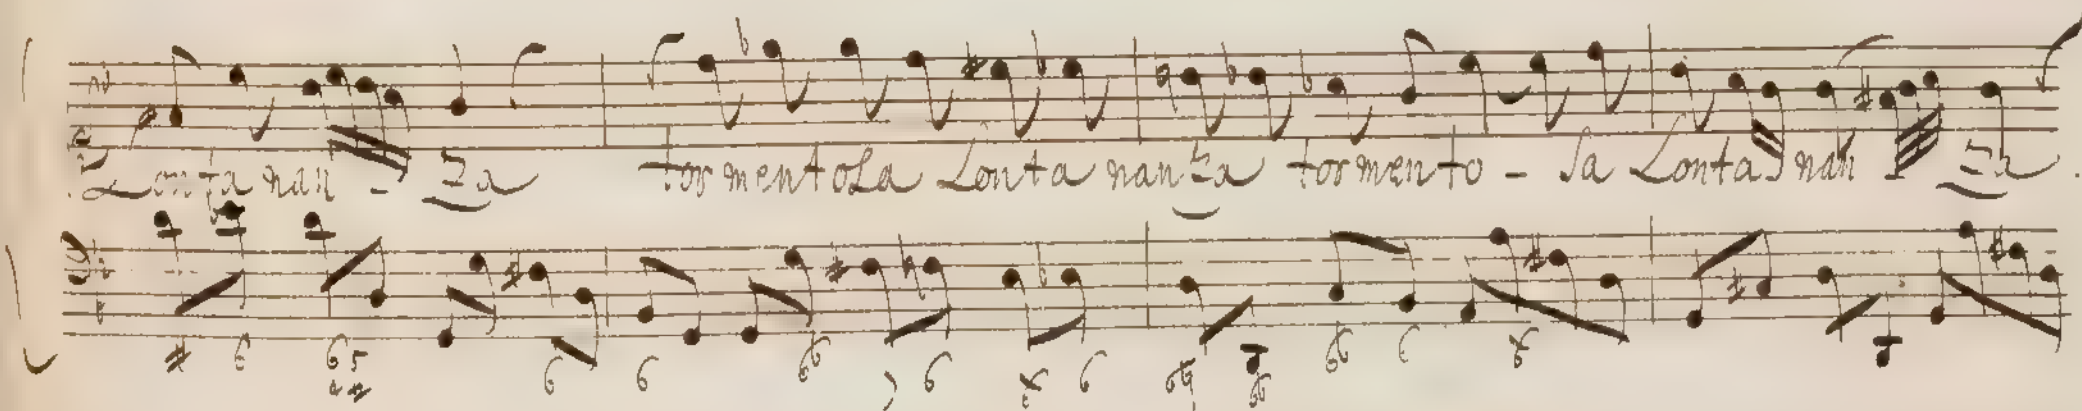 Lonta nan - za tormentosa Lonta nanza tormento - sa Lonta nan - za.
# 6 6 5 6 6 6 6 6 6 6 6 6